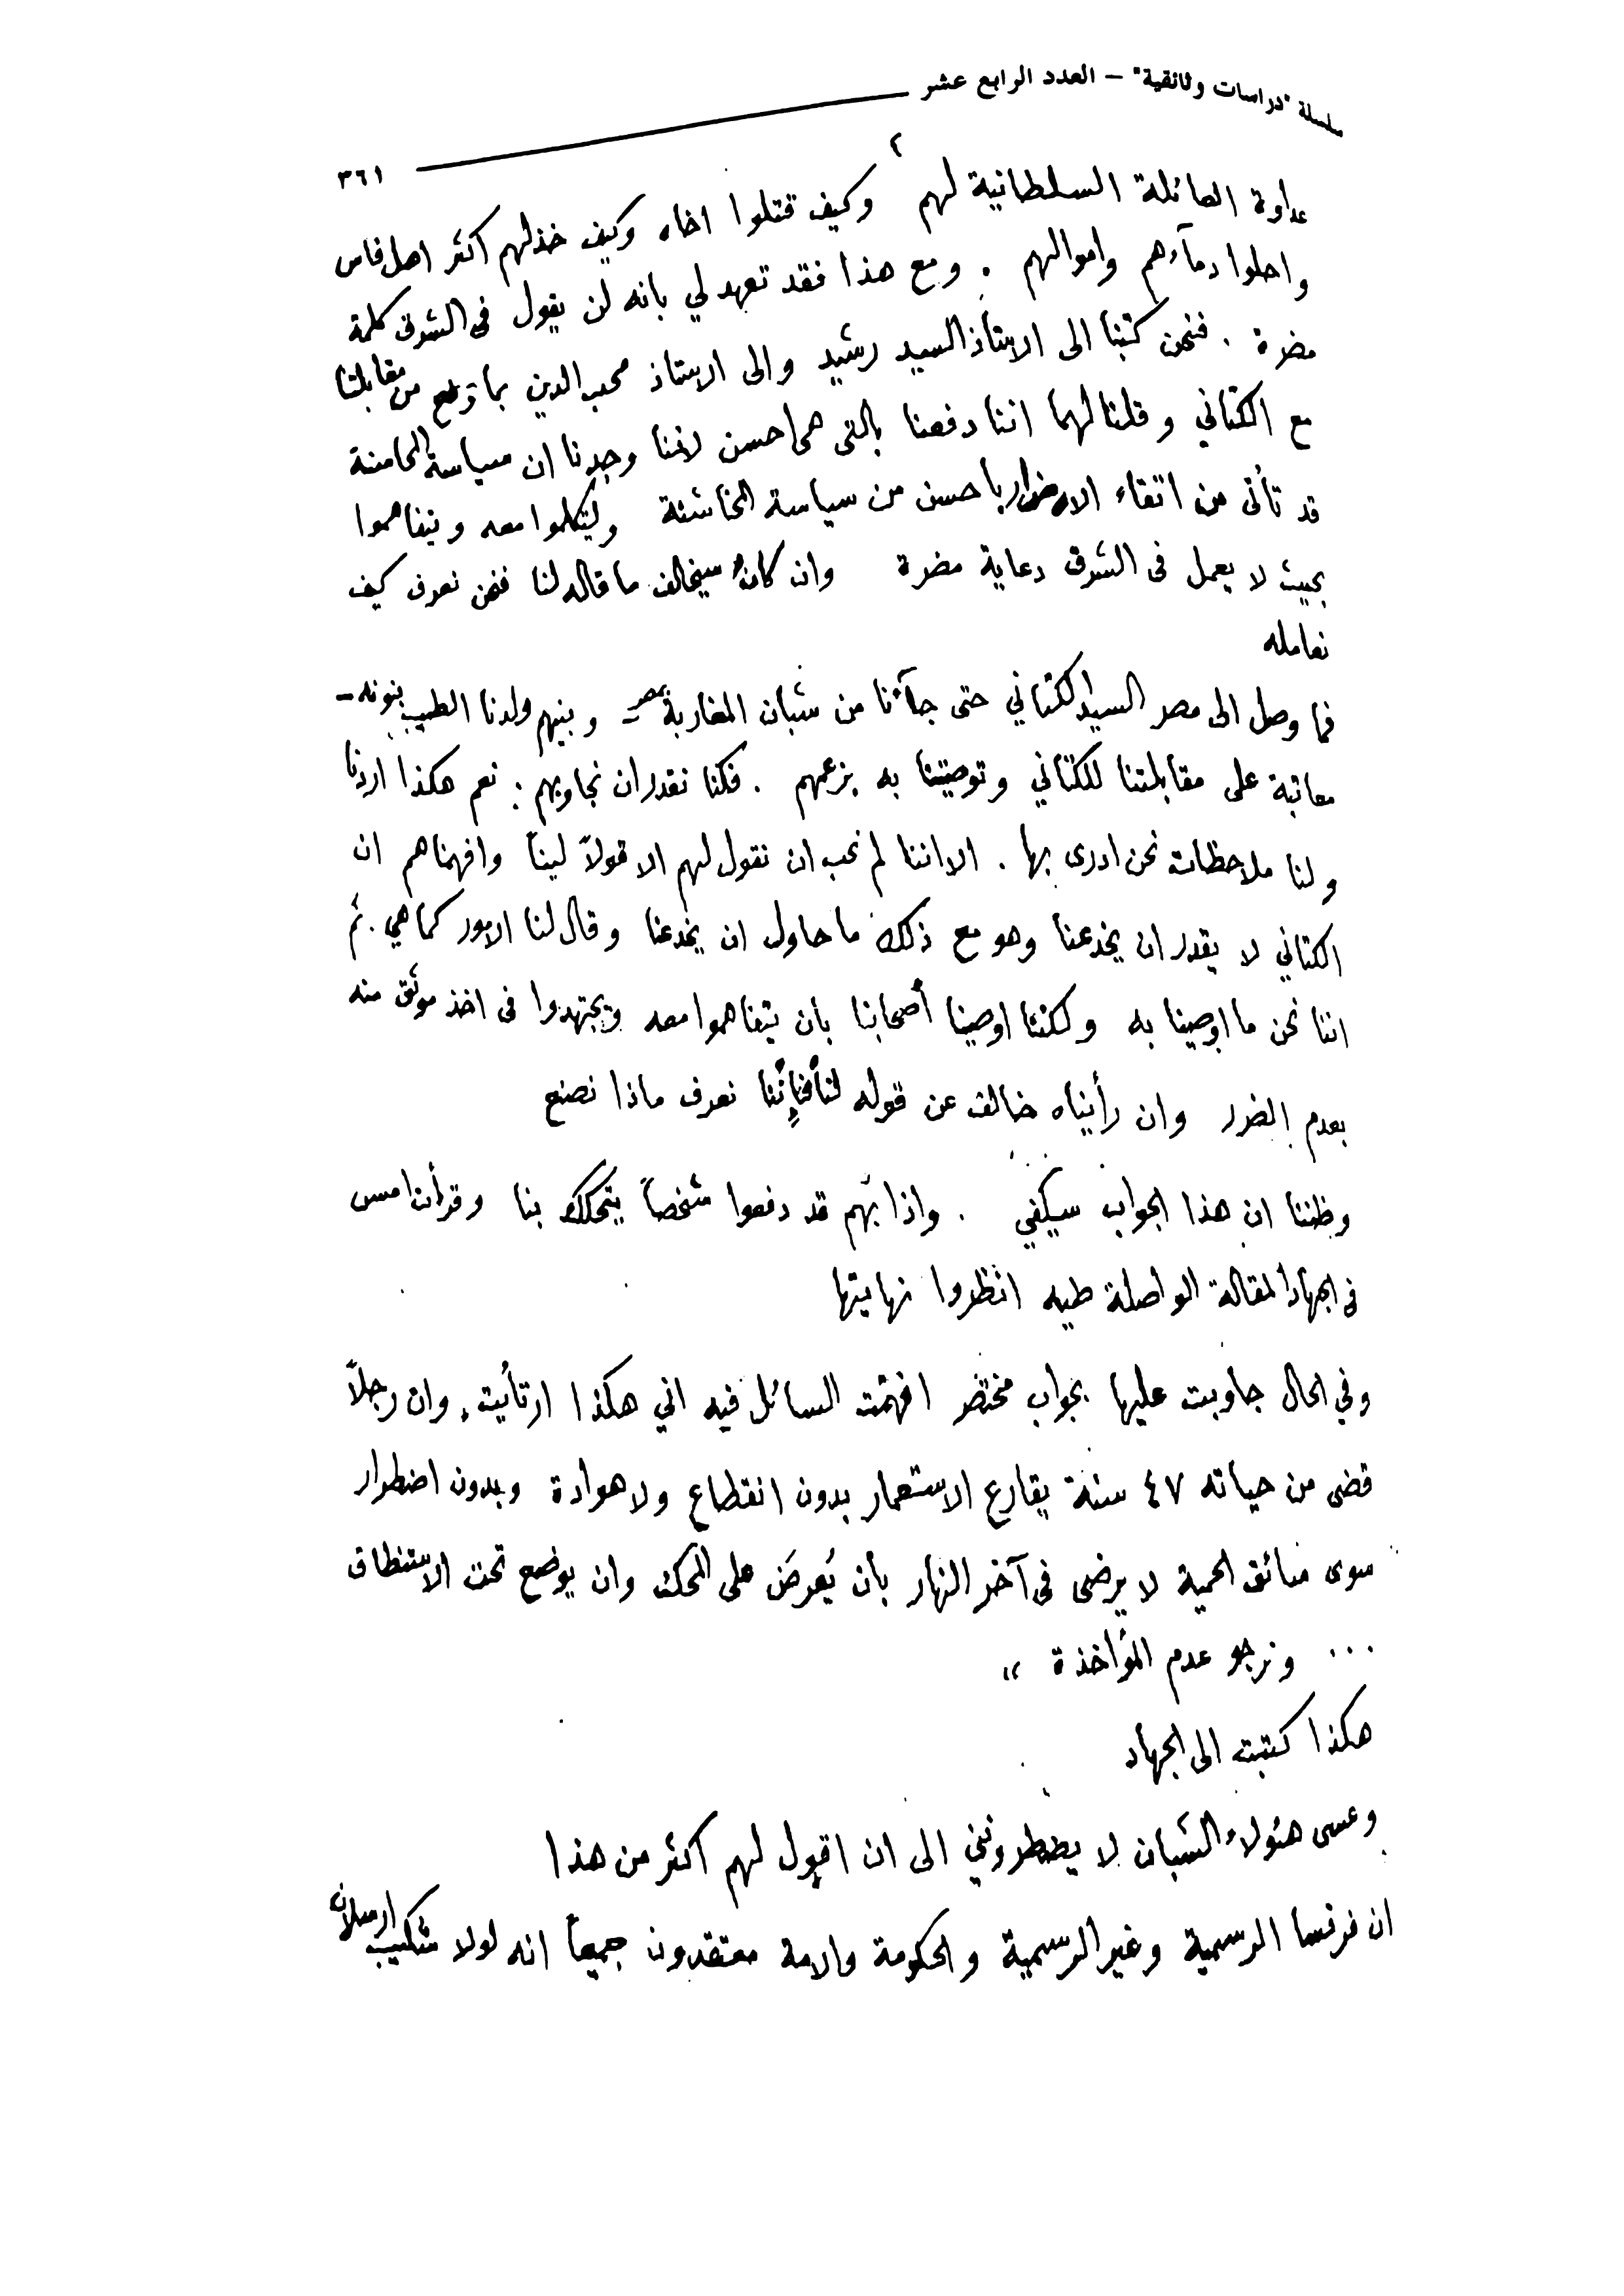 سلسلة "دراسات وثائقية" – العدد الرابع عشر
٣٦١
٢
عداوة العائلة السلطانية لهم وكيف قتلوا اخاه وكيف خذلهم اكثر اهل فاس
واحلوا دمآءهم واموالهم . ومع هذا فقد تعهد لي بانه لن يقول فى الشرق كلمة
مضرة . فنحن كتبنا الى الاستاذ السيد رشيد والى الاستاذ محب الدين بما وقع من مقابلتنا
مع الكتاني وقلنا لهما اننا دفعنا بالتى هى احسن لاننا وجدنا ان سياسة المحاسنة
قد تأتى من اتقاء الاضرار باحسن من سياسة المخاشنة وليتكلموا معه ويتفاهموا
بحيث لا يعمل فى الشرق دعاية مضرة وان كان سيخالف ما قاله لنا فنحن نعرف كيف
نعامله
فما وصل الى مصر السيد الكتاني حتى جآءنا من شبان المغاربة بمصر – وبينهم ولدنا الطيب بنونه –
معاتبة على مقابلتنا للكتاني وتوصيتنا به بزعمهم . فكنا نقدر ان نجاوبهم : نعم هكذا اردنا
ولنا ملاحظات نحن ادرى بها . الا اننا لم نحب ان نقول لهم الا قولاً ليناً وافهمناهم ان
الكتاني لا يقدر ان يخدعنا وهو مع ذلك ما حاول ان يخدعنا وقال لنا الامور كما هي . ثم
اننا نحن ما اوصينا به ولكننا اوصينا أصحابنا بان يتفاهموا معه ويجتهدوا فى اخذ موثق منه
بعدم الضرر وان رأيناه خالف عن قوله لنا فإننا نعرف ماذا نصنع
وظننا ان هذا الجواب سيكفي . واذا بهم قد دفعوا شخصاً يتحكك بنا وقرأت امس
فى الجهاد المقالة الواصلة طيه انظروا نهايتها
وفي الحال جاوبت عليها بجواب مختصر افهمت السائل فيه اني هكذا ارتأيت، وان رجلاً
قضى من حياته ٤٧ سنة يقارع الاستعمار بدون انقطاع ولا هوادة وبدون اضطرار
سوى سائق الحمية لا يرضى فى آخر النهار بأن يُعرض على المحك وان يوضع تحت الاستنطاق
... ونرجو عدم المؤاخذة »
هكذا كتبت الى الجهاد
وعسى هئولاء الشبان لا يضطرونني الى ان اقول لهم اكثر من هذا
ان فرنسا الرسمية وغير الرسمية والحكومة والامة معتقدون جميعاً انه لولا شكيب ارسلان